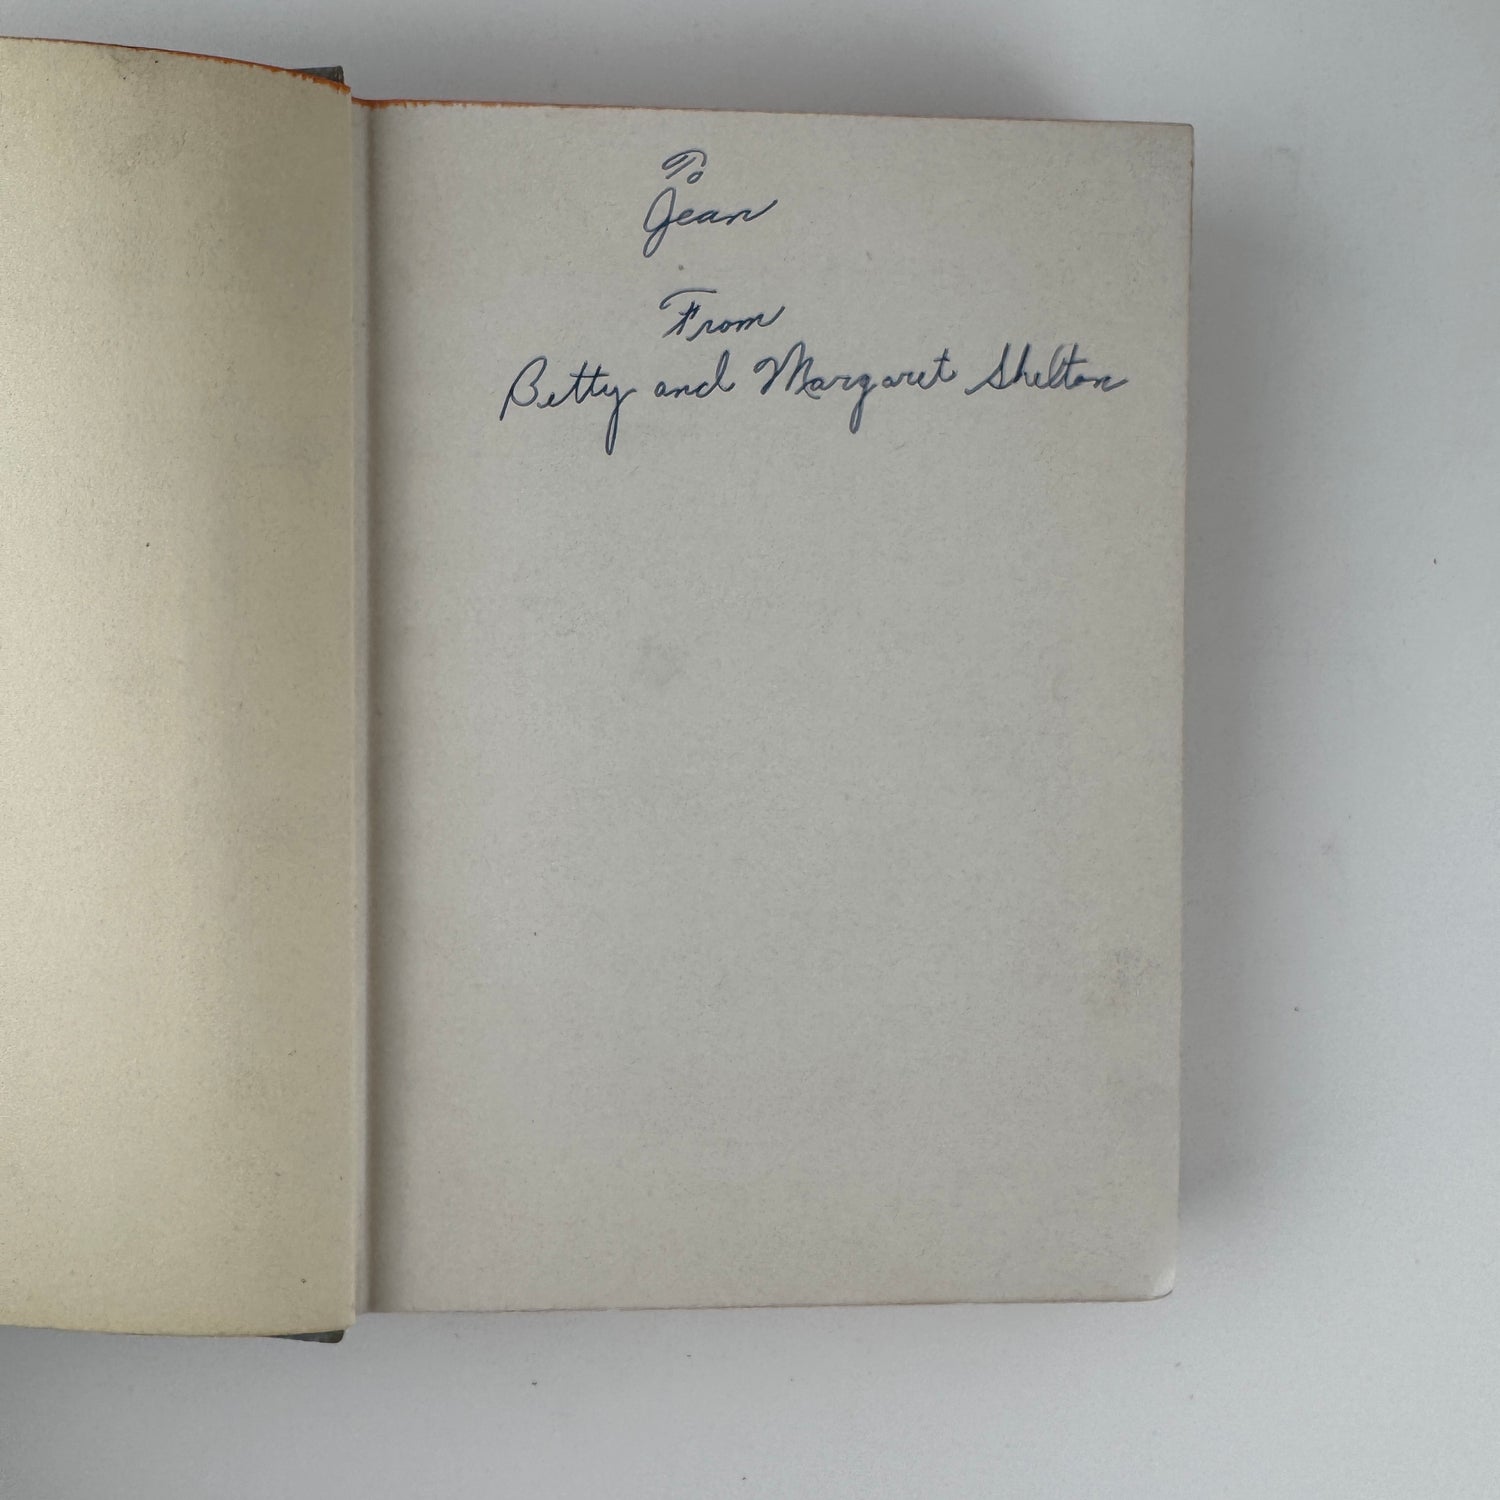 To
Jean
From
Betty and Margaret Shelton